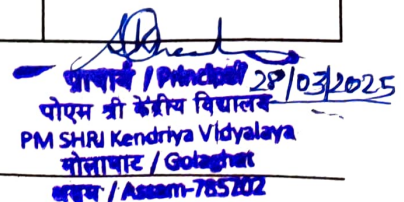 प्राचार्य / Principal 28/03/2025
पीएम श्री केंद्रीय विद्यालय
PM SHRI Kendriya Vidyalaya
गोलाघाट / Golaghat
असम / Assam-785702